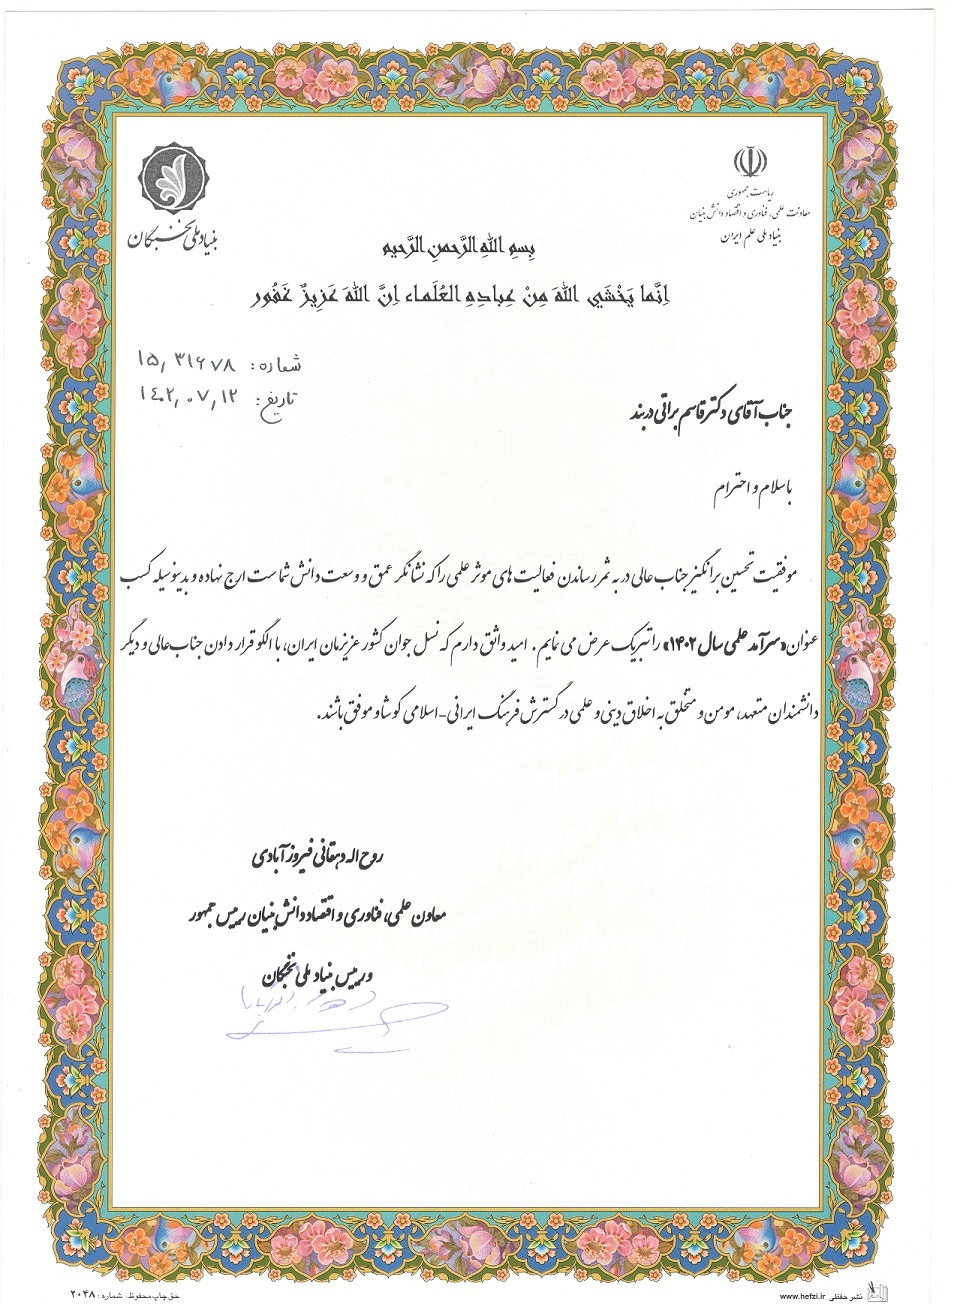 ریاست جمهوری
معاونت علمی، فناوری و اقتصاد دانش بنیان
بنیاد ملی علم ایران
بنیاد ملی نخبگان
بِسمِ اللهِ الرَّحمنِ الرَّحیم
اِنَّما یَخْشَی اللهَ مِنْ عِبادِهِ العُلَماء اِنَّ اللهَ عَزیزٌ غَفُور
شماره: ۱۵٫۳۱۶۷۸
تاریخ: ۱۴۰۲٫۰۷٫۱۲
جناب آقای دکتر قاسم براتی دربند
با سلام و احترام
موفقیت تحسین برانگیز جناب عالی در به ثمر رساندن فعالیت های موثر علمی را که نشانگر عمق و وسعت دانش شماست ارج نهاده و بدینوسیله کسب
عنوان «سرآمد علمی سال ۱۴۰۲» را تبریک عرض می نمایم. امید واثق دارم که نسل جوان کشور عزیزمان ایران، با الگو قرار دادن جناب عالی و دیگر
دانشمندان متعهد، مومن و متخلق به اخلاق دینی و علمی در گسترش فرهنگ ایرانی-اسلامی کوشا و موفق باشند.
روح اله دهقانی فیروزآبادی
معاون علمی، فناوری و اقتصاد دانش بنیان رییس جمهور
و رییس بنیاد ملی نخبگان
نشر حفظی www.hefzi.ir
حق چاپ محفوظ. شماره: ۲۰۴۸